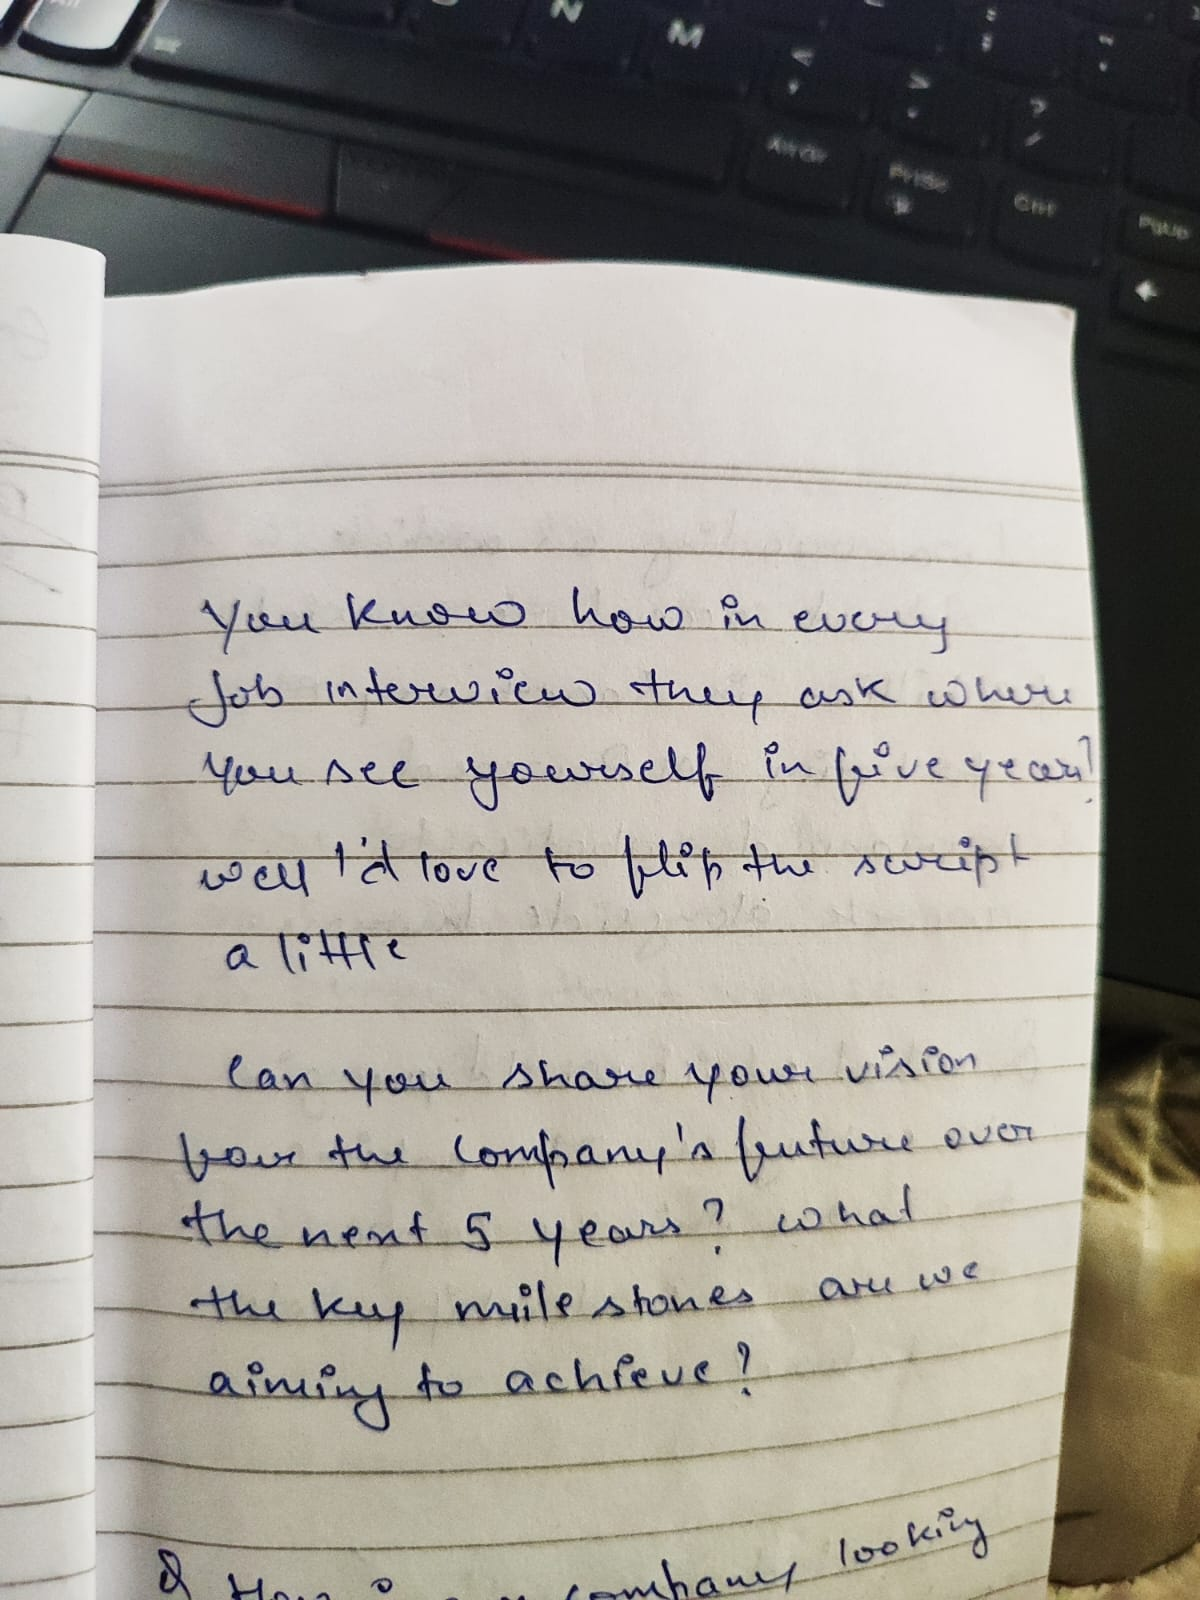 N M
Alt Gr PrtSc Ctrl PgUp
You know how in every
Job interview they ask where
you see yourself in five years?
well I'd love to flip the script
a little
Can you share your vision
for the company's future over
the next 5 years? what
the key milestones are we
aiming to achieve?
company looking